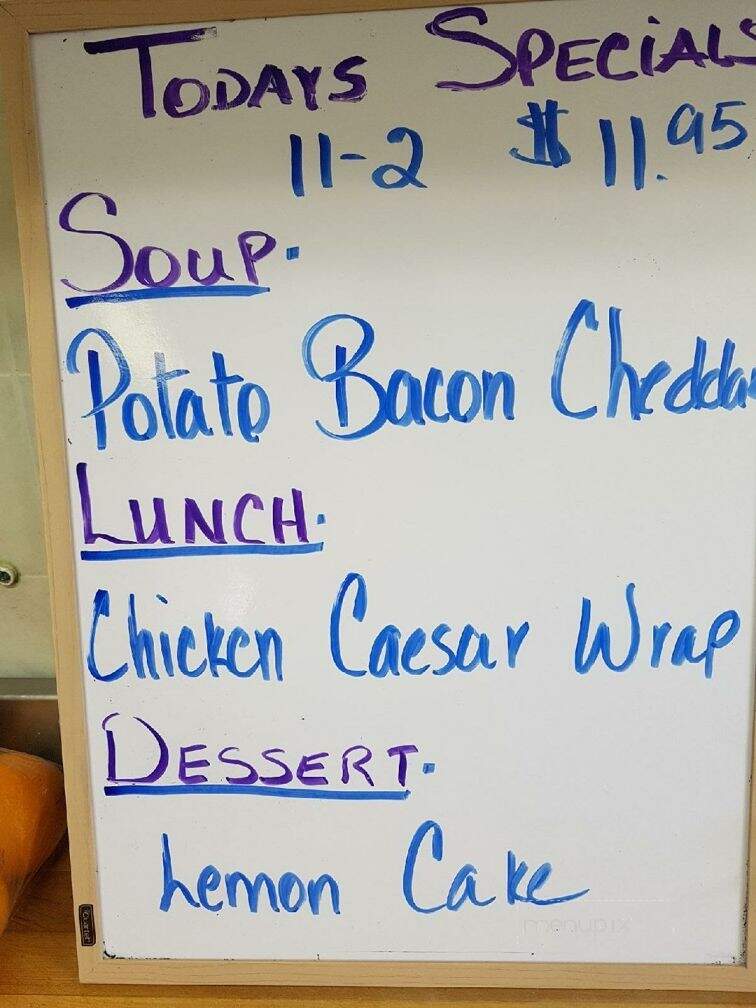 TODAYS SPECIALS
11-2 $11.95
SOUP.
Potato Bacon Cheddar
LUNCH.
Chicken Caesar Wrap
DESSERT.
Lemon Cake
menupix
Quartet